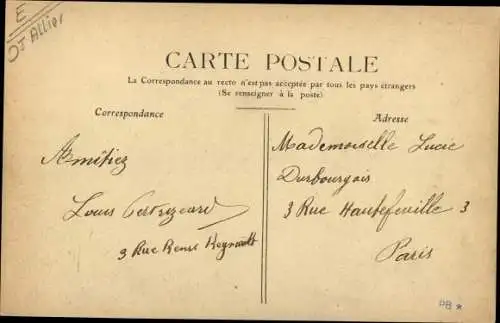 E
03 Allier
CARTE POSTALE
La Correspondance au recto n'est pas acceptée par tous les pays étrangers
(Se renseigner à la poste)
Correspondance
Adresse
Amitiez
Louis
3 Rue Henri Regnault
Mademoiselle Lucie
Durbourgois
3 Rue Hautefeuille 3
Paris
PB *